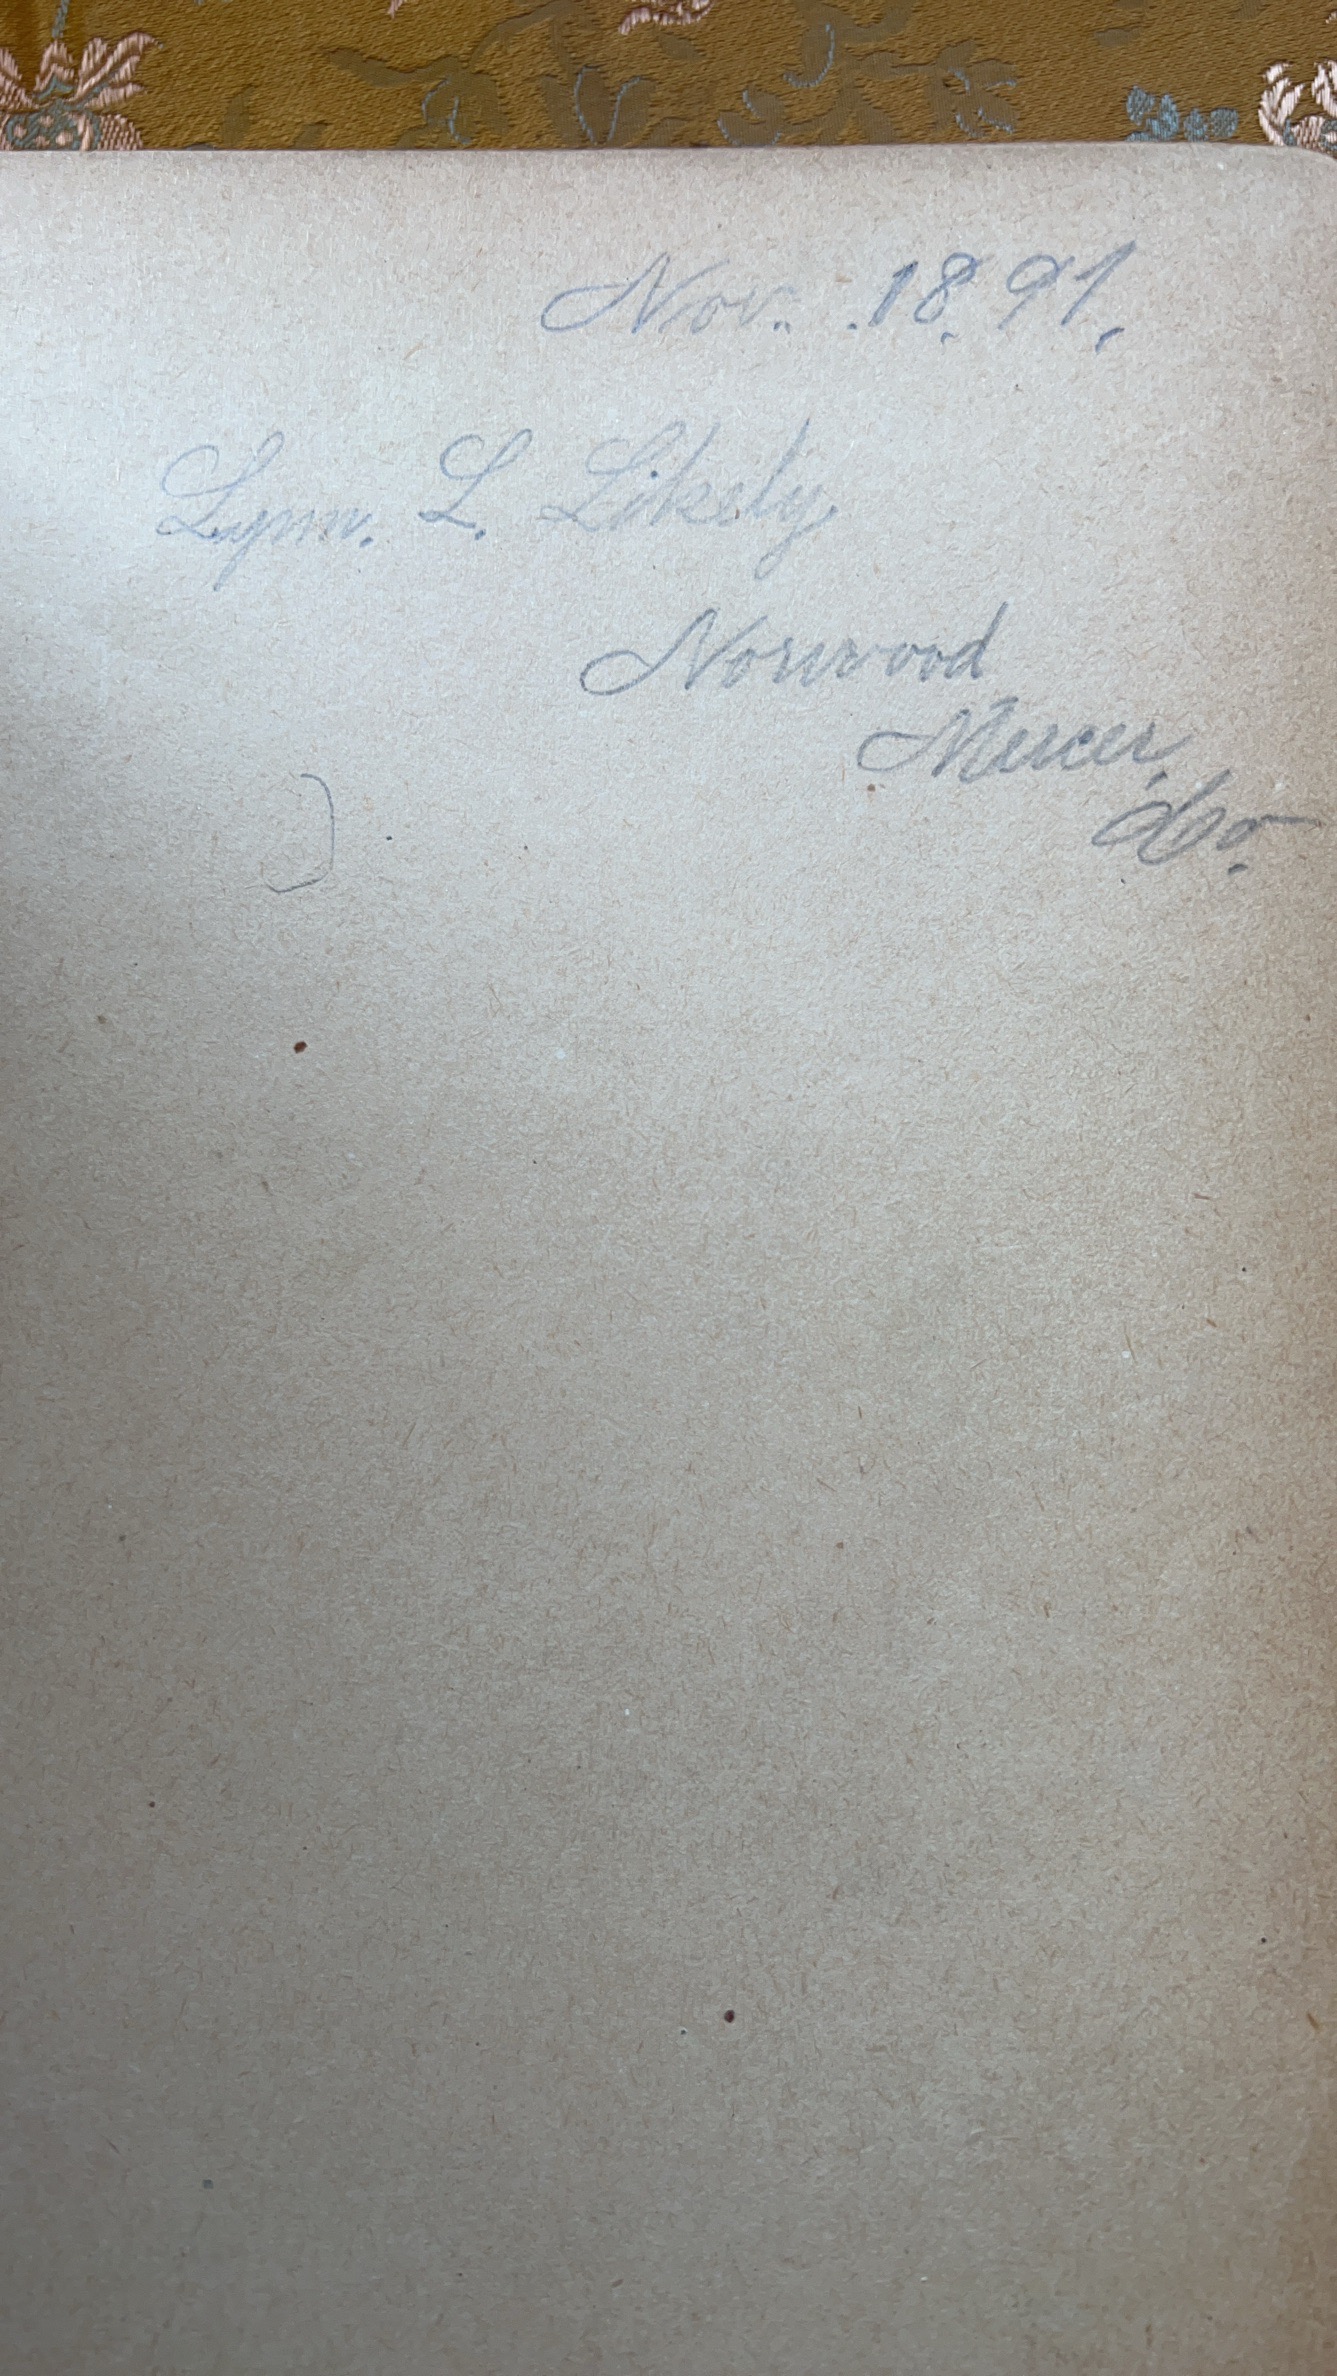 Nov. 18. 91.
Lynn. L. Likely,
Norwood
Mercer,
Co.